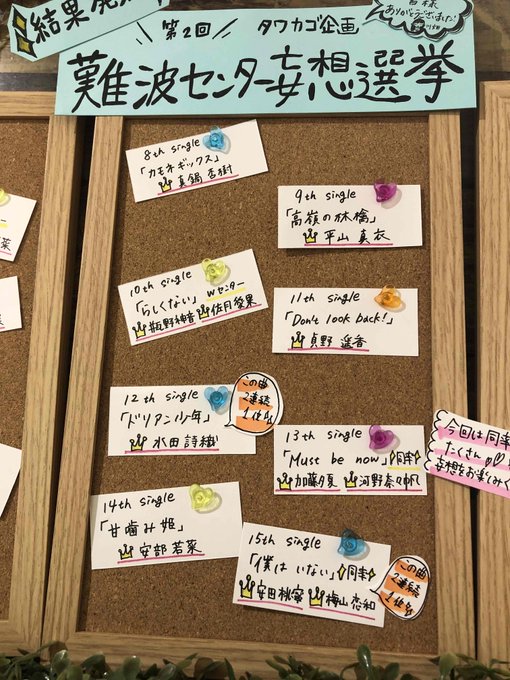 結果発
第2回
タワカゴ企画
皆様
ありがとうございました!
難波センター妄想選挙
8th single
「カモネギックス」
真鍋杏樹
9th single
「高嶺の林檎」
平山真衣
10th single
「らしくない」Wセンター
瓶野神音 佐月愛果
11th single
「Don't look back!」
貞野遥香
12th single
「ドリアン少年」
水田詩織
この曲
2連続
1位
13th single
「Must be now」同率
加藤夕夏 河野奈々帆
14th single
「甘噛み姫」
安部若菜
15th single
「僕はいない」同率
安田桃寧 梅山恋和
この曲
2連続
1位
今回は同率
たくさん
妄想をお楽しみく